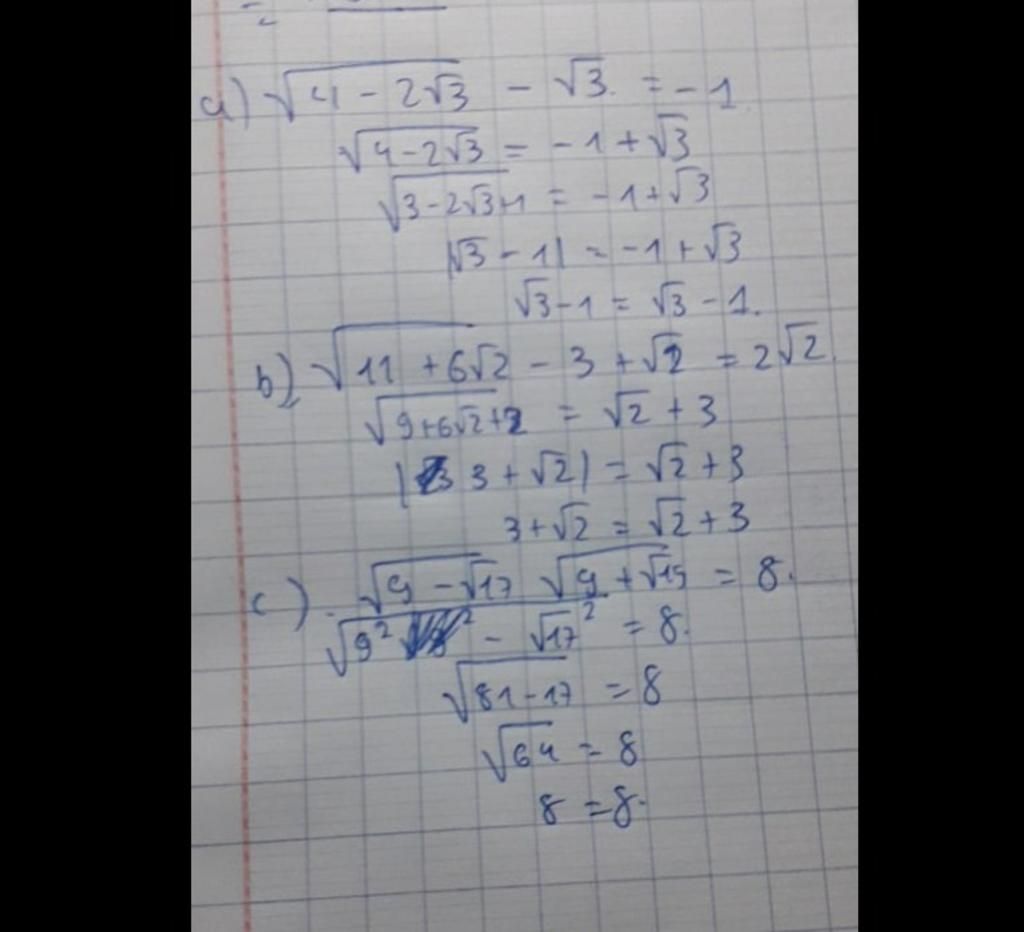 a) √(4 - 2√3) - √3 = -1
√(4-2√3) = -1 + √3
√(3-2√3+1) = -1+√3
|√3 - 1| = -1 + √3
√3-1 = √3 - 1.
b) √(11 + 6√2) - 3 + √2 = 2√2.
√(9+6√2+2) = √2 + 3
|3 + √2| = √2 + 3
3+√2 = √2 + 3
c) √(9 - √17) √(9 + √17) = 8.
√(9² - √17²) = 8.
√(81-17) = 8
√64 = 8
8 = 8.